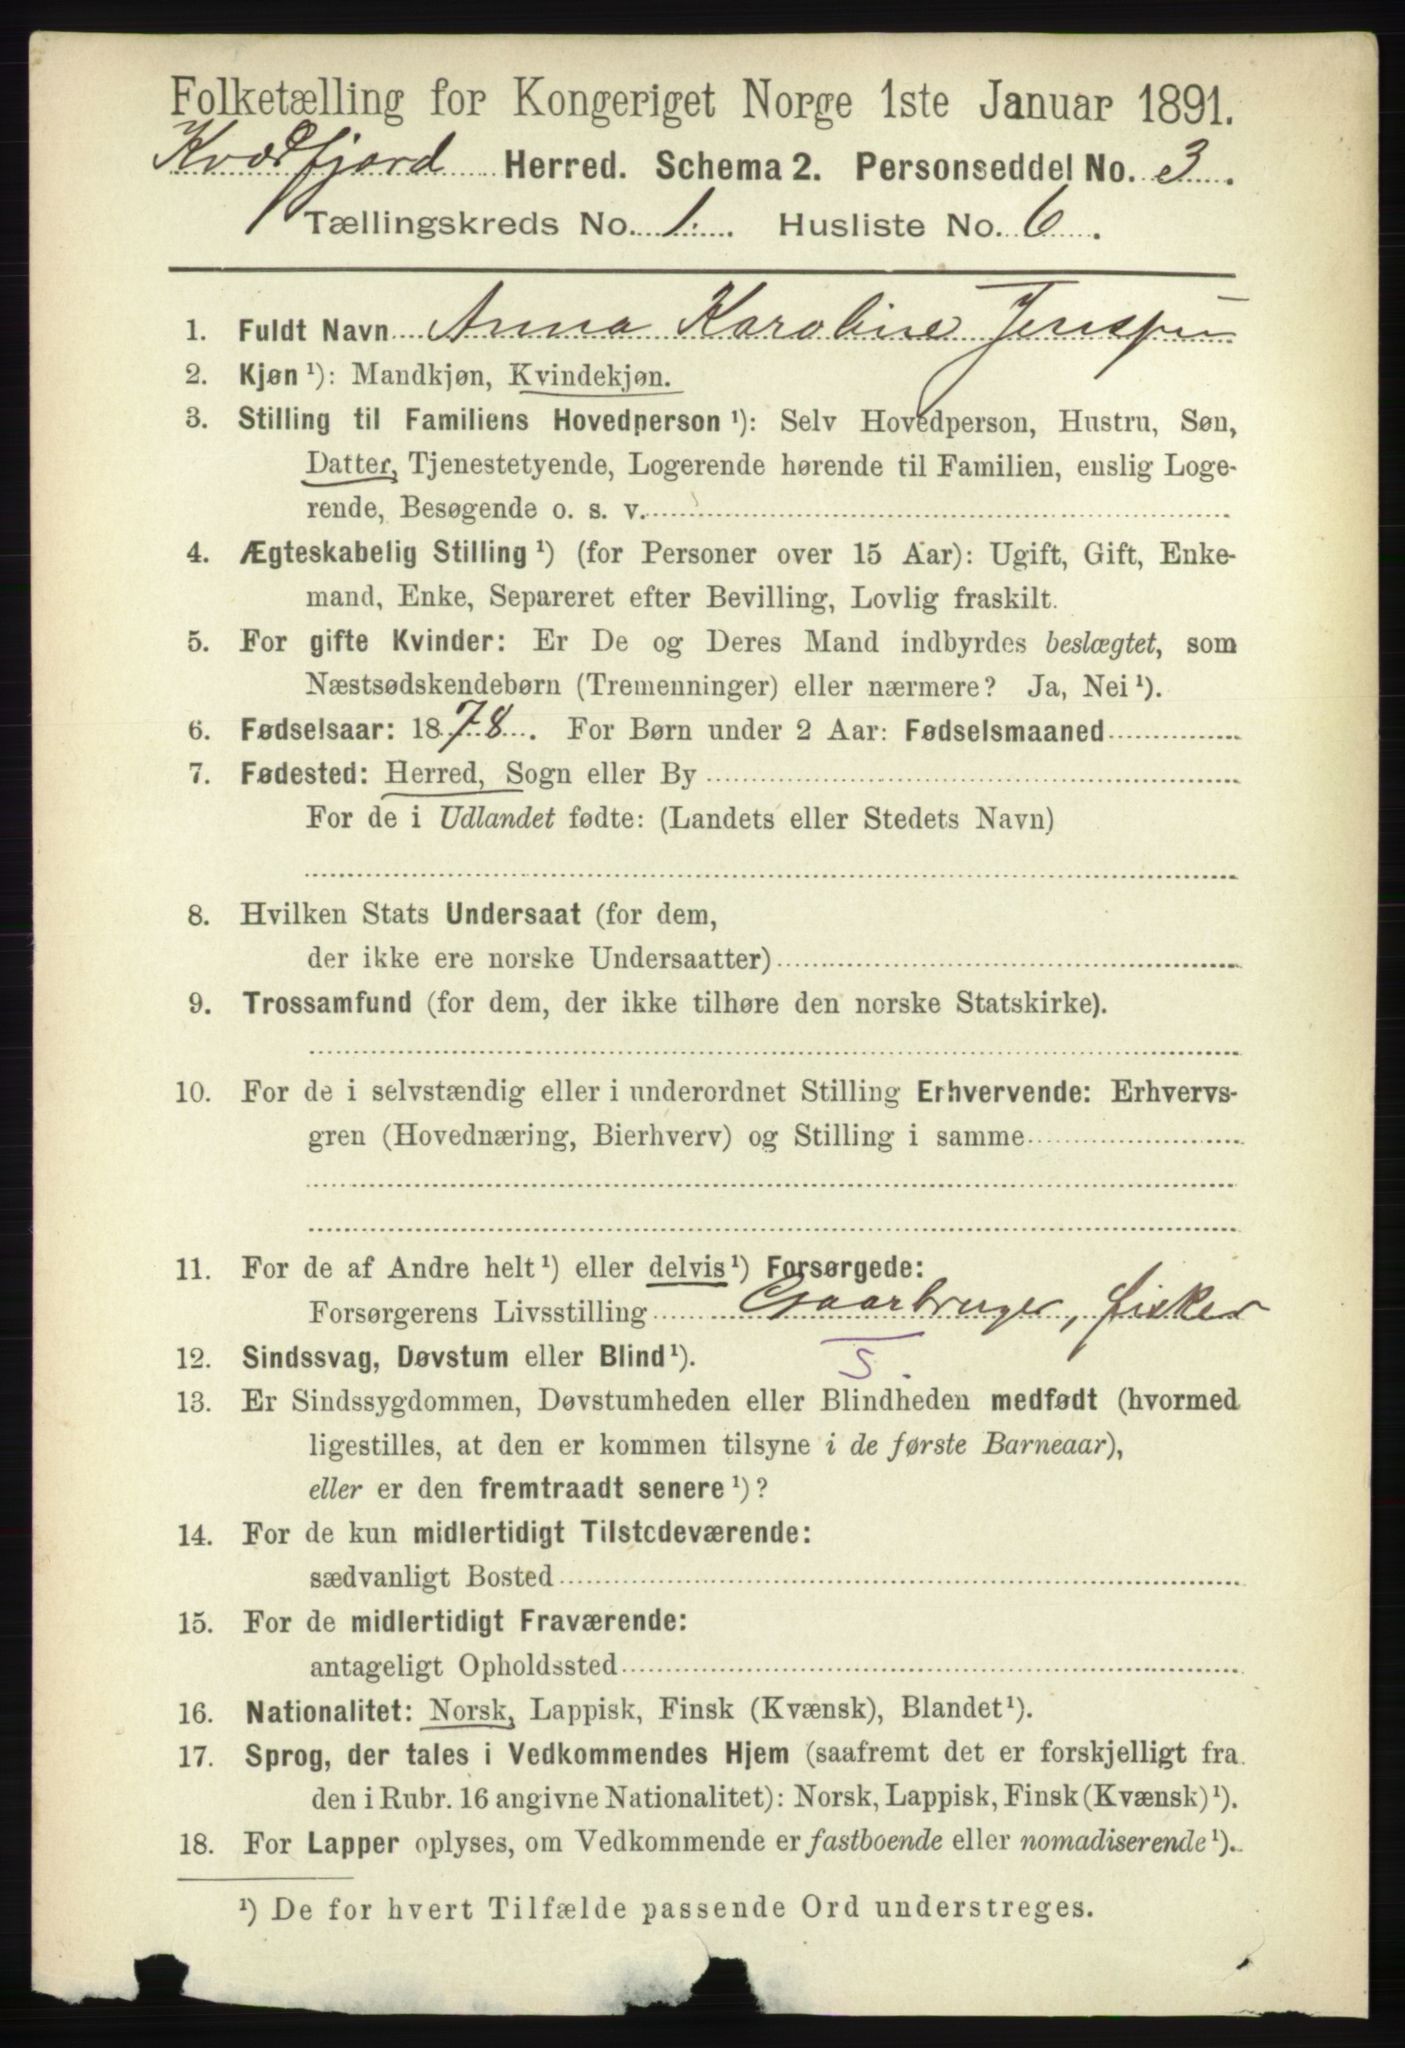 Folketælling for Kongeriget Norge 1ste Januar 1891.
Kvædfjord Herred. Schema 2. Personseddel No. 3.
Tællingskreds No. 1. Husliste No. 6.
1. Fuldt Navn Anna Karoline Jenspn
2. Kjøn ¹): Mandkjøn, Kvindekjøn.
3. Stilling til Familiens Hovedperson ¹): Selv Hovedperson, Hustru, Søn,
Datter, Tjenestetyende, Logerende hørende til Familien, enslig Loge-
rende, Besøgende o. s. v.
4. Ægteskabelig Stilling ¹) (for Personer over 15 Aar): Ugift, Gift, Enke-
mand, Enke, Separeret efter Bevilling, Lovlig fraskilt.
5. For gifte Kvinder: Er De og Deres Mand indbyrdes beslægtet, som
Næstsødskendebørn (Tremenninger) eller nærmere? Ja, Nei ¹).
6. Fødselsaar: 1878. For Børn under 2 Aar: Fødselsmaaned
7. Fødested: Herred, Sogn eller By
For de i Udlandet fødte: (Landets eller Stedets Navn)
8. Hvilken Stats Undersaat (for dem,
der ikke ere norske Undersaatter)
9. Trossamfund (for dem, der ikke tilhøre den norske Statskirke).
10. For de i selvstændig eller i underordnet Stilling Erhvervende: Erhvervs-
gren (Hovednæring, Bierhverv) og Stilling i samme
11. For de af Andre helt ¹) eller delvis ¹) Forsørgede:
Forsørgerens Livsstilling Gaarbruger, fisker
12. Sindssvag, Døvstum eller Blind ¹). S.
13. Er Sindssygdommen, Døvstumheden eller Blindheden medfødt (hvormed
ligestilles, at den er kommen tilsyne i de første Barneaar),
eller er den fremtraadt senere ¹)?
14. For de kun midlertidigt Tilstedeværende:
sædvanligt Bosted
15. For de midlertidigt Fraværende:
antageligt Opholdssted
16. Nationalitet: Norsk, Lappisk, Finsk (Kvænsk), Blandet ¹).
17. Sprog, der tales i Vedkommendes Hjem (saafremt det er forskjelligt fra
den i Rubr. 16 angivne Nationalitet): Norsk, Lappisk, Finsk (Kvænsk) ¹).
18. For Lapper oplyses, om Vedkommende er fastboende eller nomadiserende ¹).
¹) De for hvert Tilfælde passende Ord understreges.